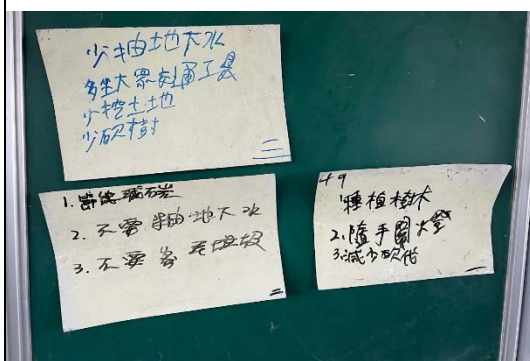 少抽地下水
多坐大眾交通工具
少挖土地
少砍樹
三
1. 節能減碳
2. 不要抽地下水
3. 不要
二
49
1種植樹木
2.隨手關火登
3.減少砍伐
一